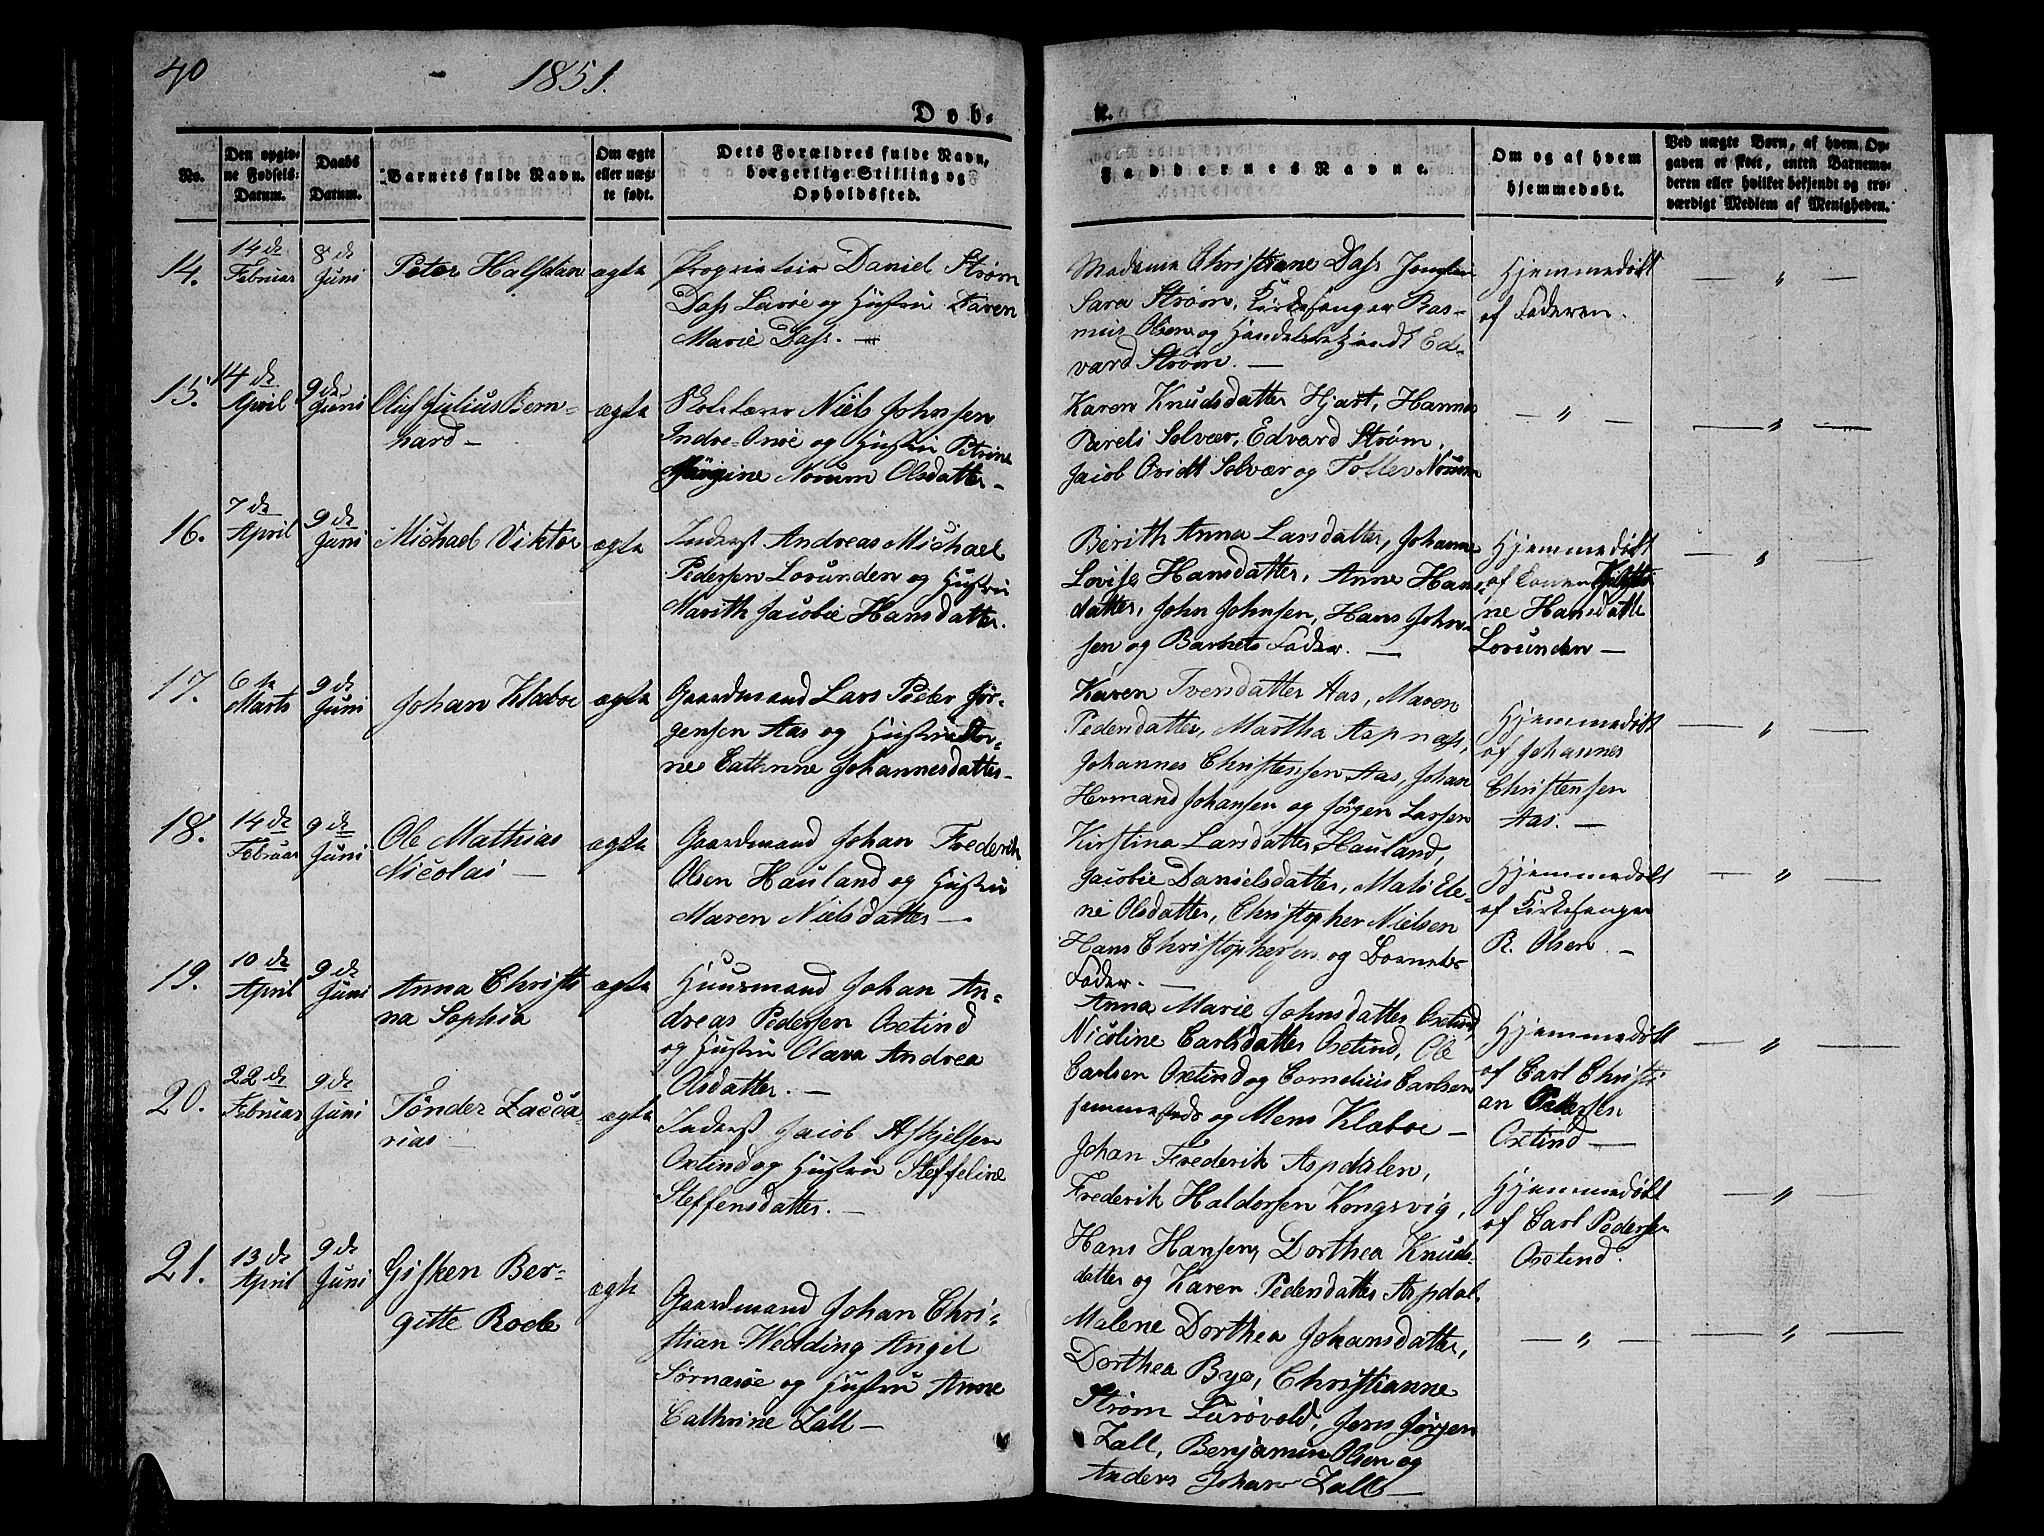 40
1851.
Døb-
te.
No.
Den opgiv-
ne Fødsels-
Datum.
Daabs
Datum.
Barnets fulde Navn.
Om ægte
eller uæg-
te født.
Dets Forældres fulde Navn,
borgerlige Stilling og
Opholdssted.
Faddernes Navne.
Om og af hvem
hjemmedøbt.
Ved uægte Børn, af hvem Op-
gaven er skeet, enten Barnemo-
deren eller hvilket bekjendt og tro-
værdigt Medlem af Menigheden.
14.
14de
Februar
8de
Juni
Peter Halfdan
ægte
Proprietair Daniel Strøm
Dass Lurøe og Hustru Maren
Marie Dass. —
Madame Christiane Dass Jomfru
Sara Strøm, Kirkesanger Ras-
mus Olsen og Handelsbetjendt Ed-
vard Strøm. —
Hjemmedøbt
af Faderen.
— " —
15.
14de
April
9de
Juni
Oluf Julius Bern-
hard —
ægte
Skolelærer Niels Johnsen
Indre-Onøe og Hustru Petrine
Jürgine Norum Olsdatter —
Karen Knudsdatter Hjart, Hannes
Pareli Solvær, Edvard Strøm,
Jacob Qvidt Solvær og Toller Norum
— "
— " —
16.
7de
April
9de
Juni
Michael Viktor
ægte
Inderst Andreas Michael
Pedersen Lovunden og Hustru
Marith Jacobie Hansdatter.
Berith Anna Larsdatter, Johanne
Lovise Hansdatter, Anne Hans-
datter, John Johnsen, Hans John-
sen og Barnets Fader. —
Hjemmedøbt
af Konen Kirsti-
ne Hansdatter
Lovunden —
— " —
17.
6te
Marts
9de
Juni
Johan Klæboe
ægte
Gaardmand Lars Peder Jør-
gensen Aas og Hustru Kar-
ne Cathrine Johannesdatter —
Karen Ivensdatter Aas, Maren
Pedersdatter, Martha Aspnæss,
Johannes Christensen Aas, Johan
Hermand Johansen og Jørgen Larsen
Hjemmedøbt
af Johannes
Christensen
Aas. —
— " —
18.
14de
Februar
9de
Juni
Ole Mathias
Nicolai —
ægte
Gaardmand Johan Frederik
Olsen Hauland og Hustru
Maren Nielsdatter —
Kirstina Larsdatter Hauland,
Jacobie Danielsdatter, Mali Ele-
ne Olsdatter, Christopher Nielsen
Hans Christophersen og Barnets
Fader. —
Hjemmedøbt
af Kirkesanger
R. Olsen. —
— " —
19.
10de
April
9de
Juni
Anna Christi-
na Sophia
ægte
Huusmand Johan An-
dreas Pedersen Oxtind
og Hustru Olava Andrea
Olsdatter. —
Anna Marie Johnsdatter Oxtind,
Nicoline Carlsdatter Oxtind, Ole
Carlsen Oxtind og Cornelius Carlsen
sammesteds og Mens Klæboe —
Hjemmedøbt
af Carl Christi-
an Pedersen
Oxtind —
— " —
20.
22de
Februar
9de
Juni
Tønder Zacca-
rias
ægte
Inderst Jacob Askjelsen
Oxtind og Hustru Steffeline
Steffensdatter. —
Johan Frederik Aspdalen,
Frederik Haldorsen Kongsvig,
Hans Hansen, Dorthea Knuds-
datter og Karen Pedersdatter Aspdal.
Hjemmedøbt
af Carl Pedersen
Oxtind.
— " —
21.
13de
April
9de
Juni
Gisken Ber-
gitte Rode
ægte
Gaardmand Johan Chri-
stian Wedding Angel
Sørnæsøe og Hustru Anne
Cathrine Zall —
Malene Dorthea Johansdatter,
Dorthea Bye, Christianne
Strøm Lurøvold, Jens Jørgen
Zall, Benjamin Olsen og
Anders Johan Zall —
— " —
— " —